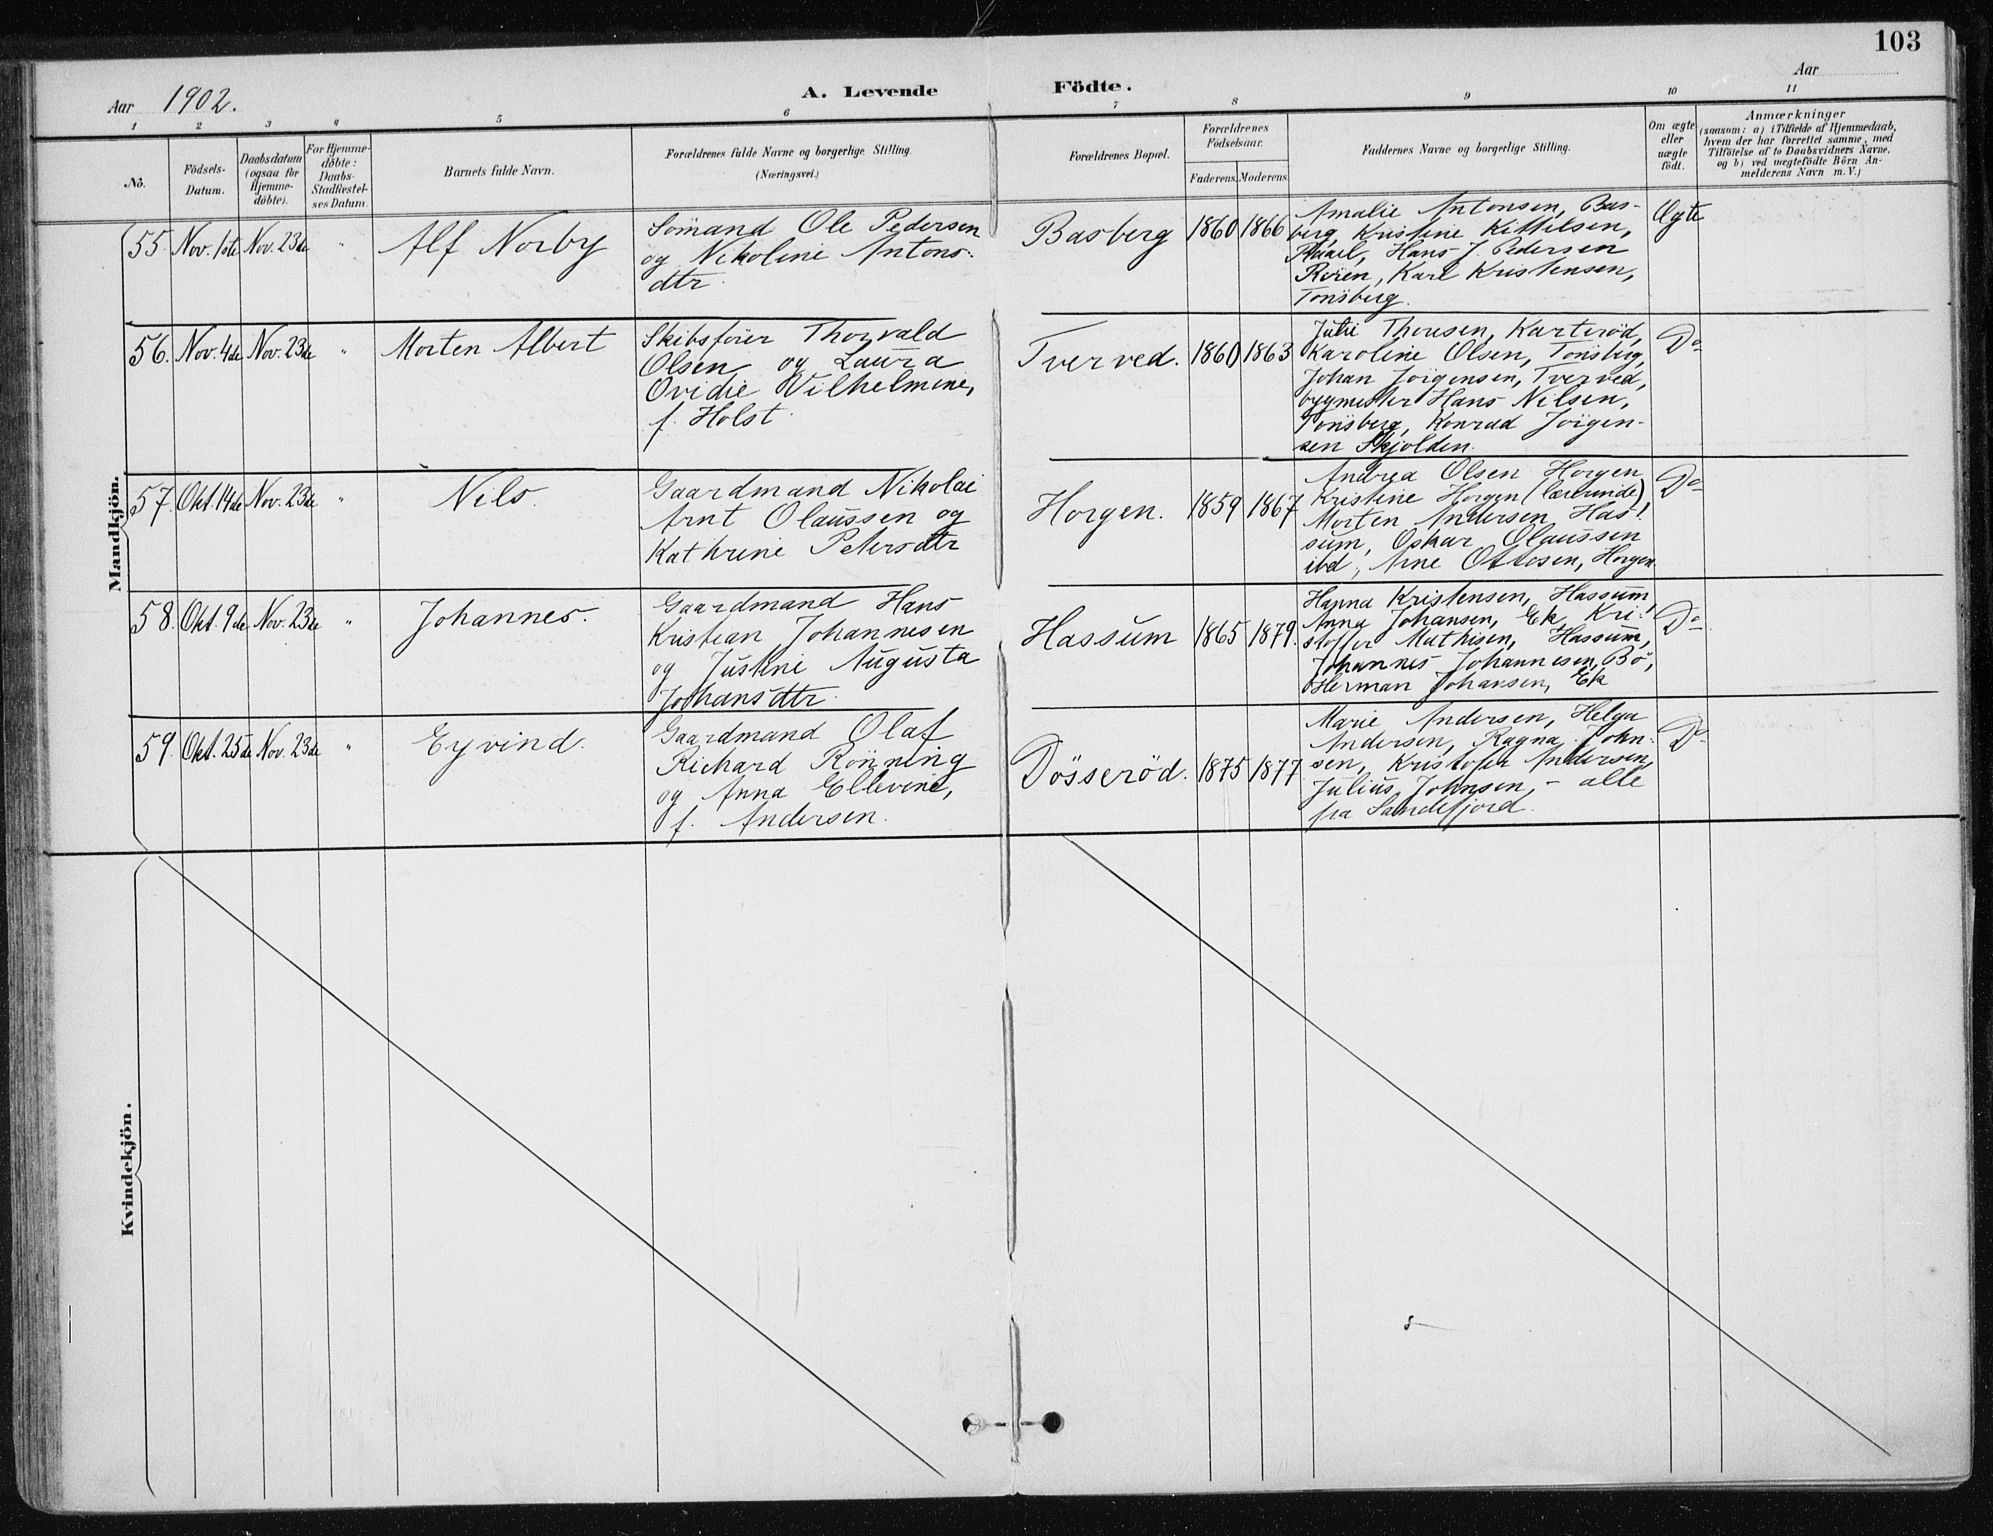 103
Aar 1902.
A. Levende Födte.
Aar
1 2 3 4 5 6 7 8 9 10 11
No.
Födsels-
Datum.
Daabsdatum
(ogsaa for
Hjemme-
döbte).
For Hjemme-
döbte:
Daabs-
Stadfæstel-
ses Datum.
Barnets fulde Navn.
Forældrenes fulde Navne og borgerlige Stilling.
(Næringsvei.)
Forældrenes Bopæl.
Forældrenes
Födselsaar.
Faderens. Moderens.
Faddernes Navne og borgerlige Stilling.
Om ægte
eller
uægte
födt.
Anmærkninger
(saasom: a) i Tilfælde af Hjemmedaab,
hvem der har forrettet samme, med
Tilföielse af to Daabsvidners Navne.
og b) ved uægtefödte Börn An-
melderens Navn m. V.)
Mandkjön.
55. Nov. 1ste Nov. 23de "
Alf Norby
Sömand Ole Pedersen
og Nikoline Antons-
dtr.
Basberg 1860 1866
Amalie Antonsen, Bas-
berg, Kristine Kittilsen,
Hans J. Pedersen
Rören, Karl Kristensen,
Tönsberg.
Ægte
56. Nov. 4de Nov. 23de "
Morten Albert
Skibsförer Thorvald
Olsen og Laura
Ovidie Wilhelmine,
f. Holst
Tverved. 1860 1863
Julie Thousen, Karteröd,
Karoline Olsen, Tönsberg,
Johan Jörgensen, Tverved,
bygmester Hans Nilsen,
Tönsberg, Konrad Jörgen-
sen Skjolden.
Do
57. Okt. 14de Nov. 23de "
Nils.
Gaardmand Nikolai
Arnt Olaussen og
Kathrine Petersdtr
Horgen. 1859 1867
Andrea Olsen Horgen
Kristine Horgen (lærerinde),
Morten Andersen Has-
sum, Oskar Olaussen
ibd, Arne Ottosen, Horgen
Do
58. Okt. 9de Nov. 23de "
Johannes.
Gaardmand Hans
Kristian Johannesen
og Justine Augusta
Johansdtr.
Hassum 1865 1879.
Hanna Kristensen, Hassum,
Anna Johansen, Ek, Kri-
stoffer Mathisen, Hassum,
Johannes Johannesen, Bö,
Herman Johansen, Ek
Do
59. Okt. 25de Nov. 23de "
Eyvind.
Gaardmand Olaf
Richard Rönning
og Anna Ellevine,
f. Andersen.
Dösseröd. 1875 1877
Marie Andersen, Helga
Andersen, Ragna John-
sen, Kristofer Andersen,
Julius Johnsen, - alle
fra Sandefjord.
Do
Kvindekjön.